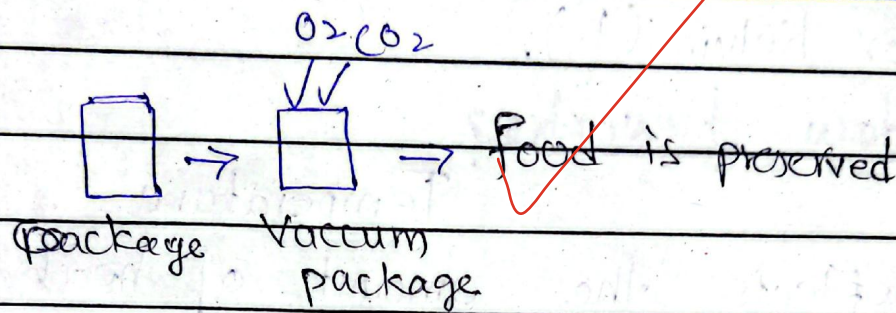 O2 CO2
Food is preserved
package Vaccum
package